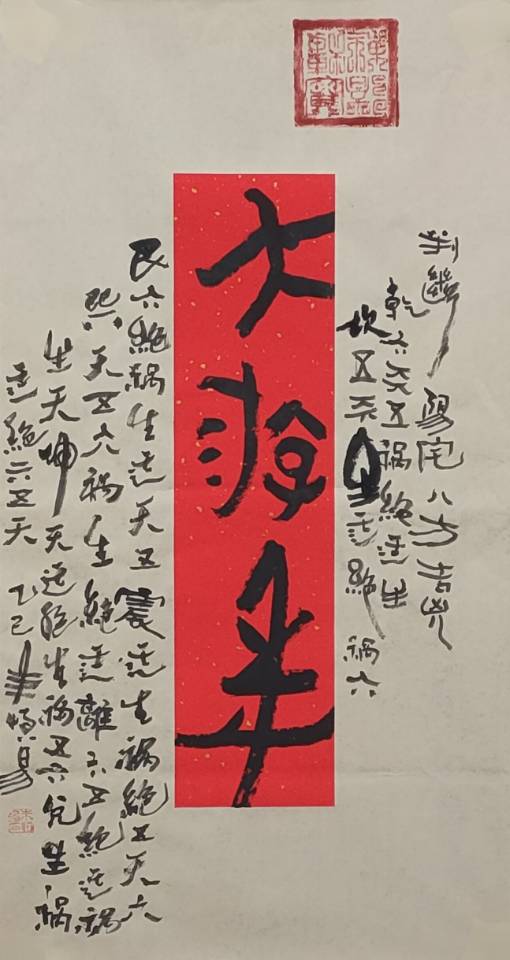 判斷陽宅八方吉凶
乾六天五禍絶延生
坎五天生延絶禍六
大游年
艮六絶禍生延天五震延生禍絶五天六
巽天五六禍生絶延離六五絶延禍
生天坤天延絶生禍五六兌生禍
延絶六五天 乙巳年